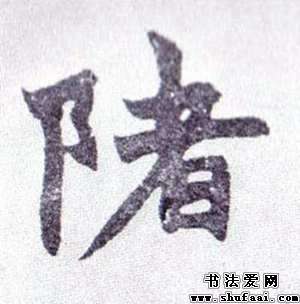 陼
书法爱网
www.shufaai.com